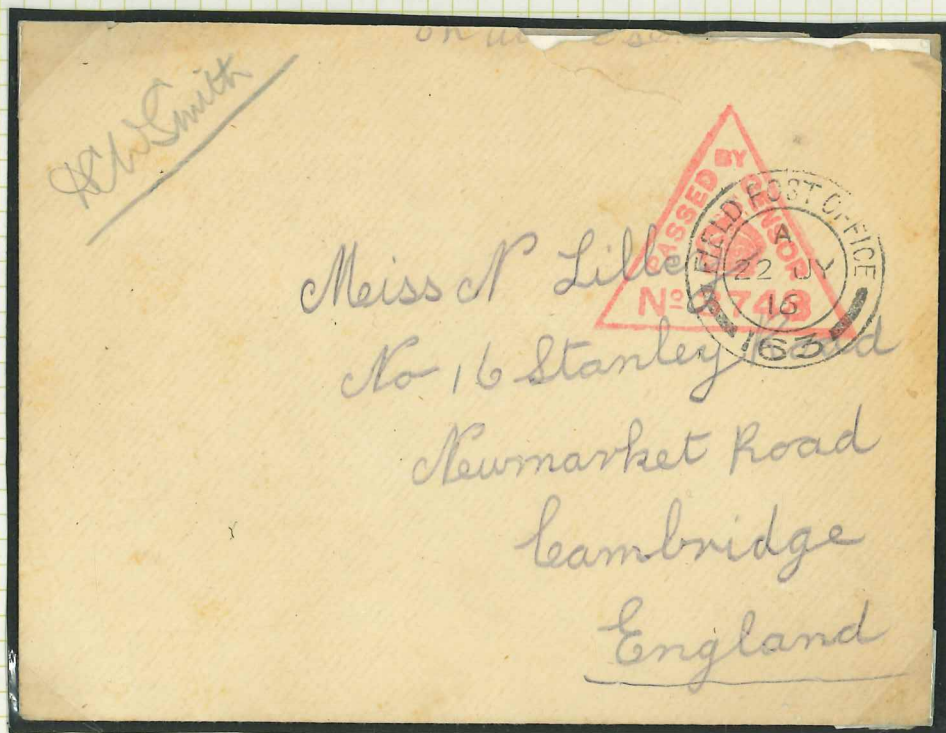 Smith
PASSED BY CENSOR
No
FIELD POST OFFICE
A
22 JY
16
163
Miss N Lilley
No 16 Stanley Road
Newmarket Road
Cambridge
England